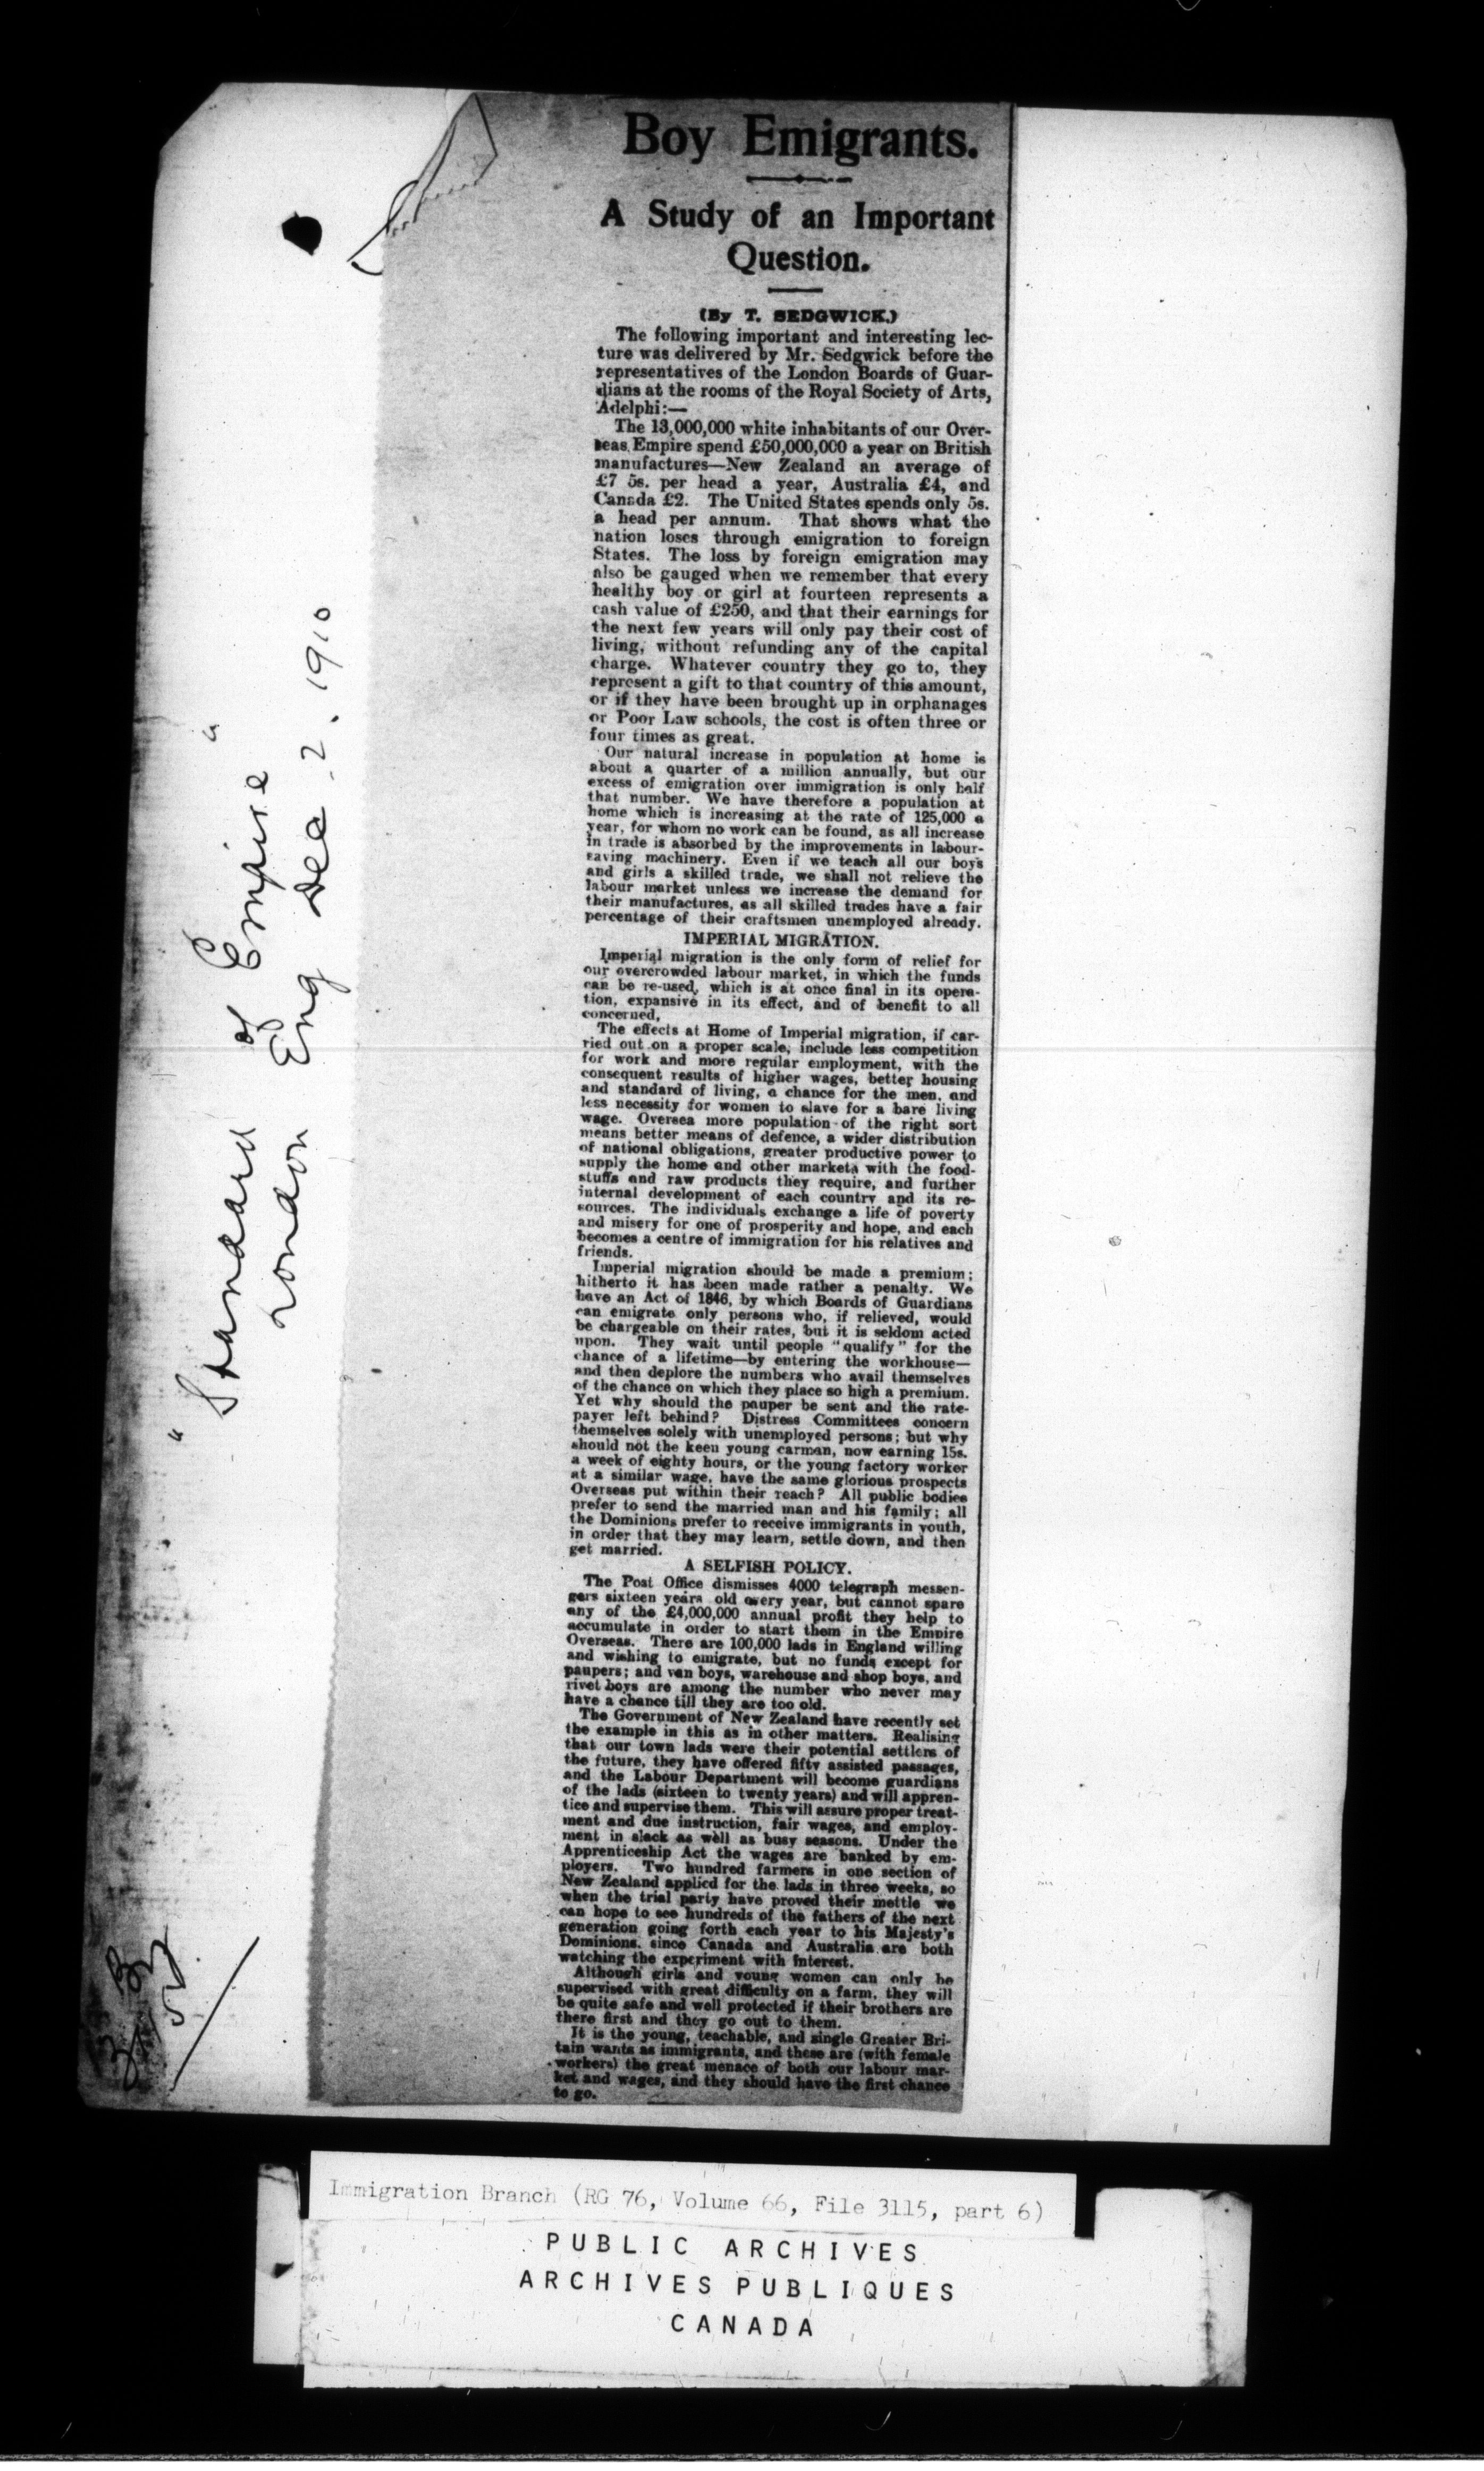 Boy Emigrants.
A Study of an Important
Question.
(By T. SEDGWICK.)
The following important and interesting lec-
ture was delivered by Mr. Sedgwick before the
representatives of the London Boards of Guar-
dians at the rooms of the Royal Society of Arts,
Adelphi:—
The 13,000,000 white inhabitants of our Over-
seas Empire spend £50,000,000 a year on British
manufactures—New Zealand an average of
£7 5s. per head a year, Australia £4, and
Canada £2. The United States spends only 5s.
a head per annum. That shows what the
nation loses through emigration to foreign
States. The loss by foreign emigration may
also be gauged when we remember that every
healthy boy or girl at fourteen represents a
cash value of £250, and that their earnings for
the next few years will only pay their cost of
living, without refunding any of the capital
charge. Whatever country they go to, they
represent a gift to that country of this amount,
or if they have been brought up in orphanages
or Poor Law schools, the cost is often three or
four times as great.
Our natural increase in population at home is
about a quarter of a million annually, but our
excess of emigration over immigration is only half
that number. We have therefore a population at
home which is increasing at the rate of 125,000 a
year, for whom no work can be found, as all increase
in trade is absorbed by the improvements in labour-
saving machinery. Even if we teach all our boys
and girls a skilled trade, we shall not relieve the
labour market unless we increase the demand for
their manufactures, as all skilled trades have a fair
percentage of their craftsmen unemployed already.
IMPERIAL MIGRATION.
Imperial migration is the only form of relief for
our overcrowded labour market, in which the funds
can be re-used, which is at once final in its opera-
tion, expansive in its effect, and of benefit to all
concerned.
The effects at Home of Imperial migration, if car-
ried out on a proper scale, include less competition
for work and more regular employment, with the
consequent results of higher wages, better housing
and standard of living, a chance for the men, and
less necessity for women to slave for a bare living
wage. Oversea more population of the right sort
means better means of defence, a wider distribution
of national obligations, greater productive power to
supply the home and other markets with the food-
stuffs and raw products they require, and further
internal development of each country and its re-
sources. The individuals exchange a life of poverty
and misery for one of prosperity and hope, and each
becomes a centre of immigration for his relatives and
friends.
Imperial migration should be made a premium;
hitherto it has been made rather a penalty. We
have an Act of 1846, by which Boards of Guardians
can emigrate only persons who, if relieved, would
be chargeable on their rates, but it is seldom acted
upon. They wait until people "qualify" for the
chance of a lifetime—by entering the workhouse—
and then deplore the numbers who avail themselves
of the chance on which they place so high a premium.
Yet why should the pauper be sent and the rate-
payer left behind? Distress Committees concern
themselves solely with unemployed persons; but why
should not the keen young carman, now earning 15s.
a week of eighty hours, or the young factory worker
at a similar wage, have the same glorious prospects
Overseas put within their reach? All public bodies
prefer to send the married man and his family; all
the Dominions prefer to receive immigrants in youth,
in order that they may learn, settle down, and then
get married.
A SELFISH POLICY.
The Post Office dismisses 4000 telegraph messen-
gers sixteen years old every year, but cannot spare
any of the £4,000,000 annual profit they help to
accumulate in order to start them in the Empire
Overseas. There are 100,000 lads in England willing
and wishing to emigrate, but no funds except for
paupers; and van boys, warehouse and shop boys, and
rivet boys are among the number who never may
have a chance till they are too old.
The Government of New Zealand have recently set
the example in this as in other matters. Realising
that our town lads were their potential settlers of
the future, they have offered fifty assisted passages,
and the Labour Department will become guardians
of the lads (sixteen to twenty years) and will appren-
tice and supervise them. This will assure proper treat-
ment and due instruction, fair wages, and employ-
ment in slack as well as busy seasons. Under the
Apprenticeship Act the wages are banked by em-
ployers. Two hundred farmers in one section of
New Zealand applied for the lads in three weeks, so
when the trial party have proved their mettle we
can hope to see hundreds of the fathers of the next
generation going forth each year to his Majesty's
Dominions, since Canada and Australia are both
watching the experiment with interest.
Although girls and young women can only be
supervised with great difficulty on a farm, they will
be quite safe and well protected if their brothers are
there first and they go out to them.
It is the young, teachable, and single Greater Bri-
tain wants as immigrants, and these are (with female
workers) the great menace of both our labour mar-
ket and wages, and they should have the first chance
to go.
"Standard of Empire"
London Eng Dec 2. 1910
Immigration Branch (RG 76, Volume 66, File 3115, part 6)
PUBLIC ARCHIVES
ARCHIVES PUBLIQUES
CANADA